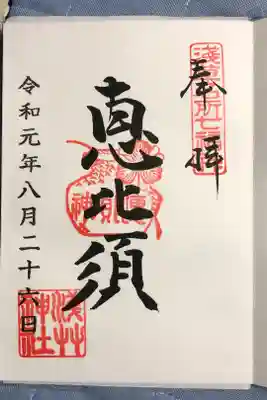 奉拝
浅草名所七福神
恵比須
令和元年八月二十六日
浅草神社